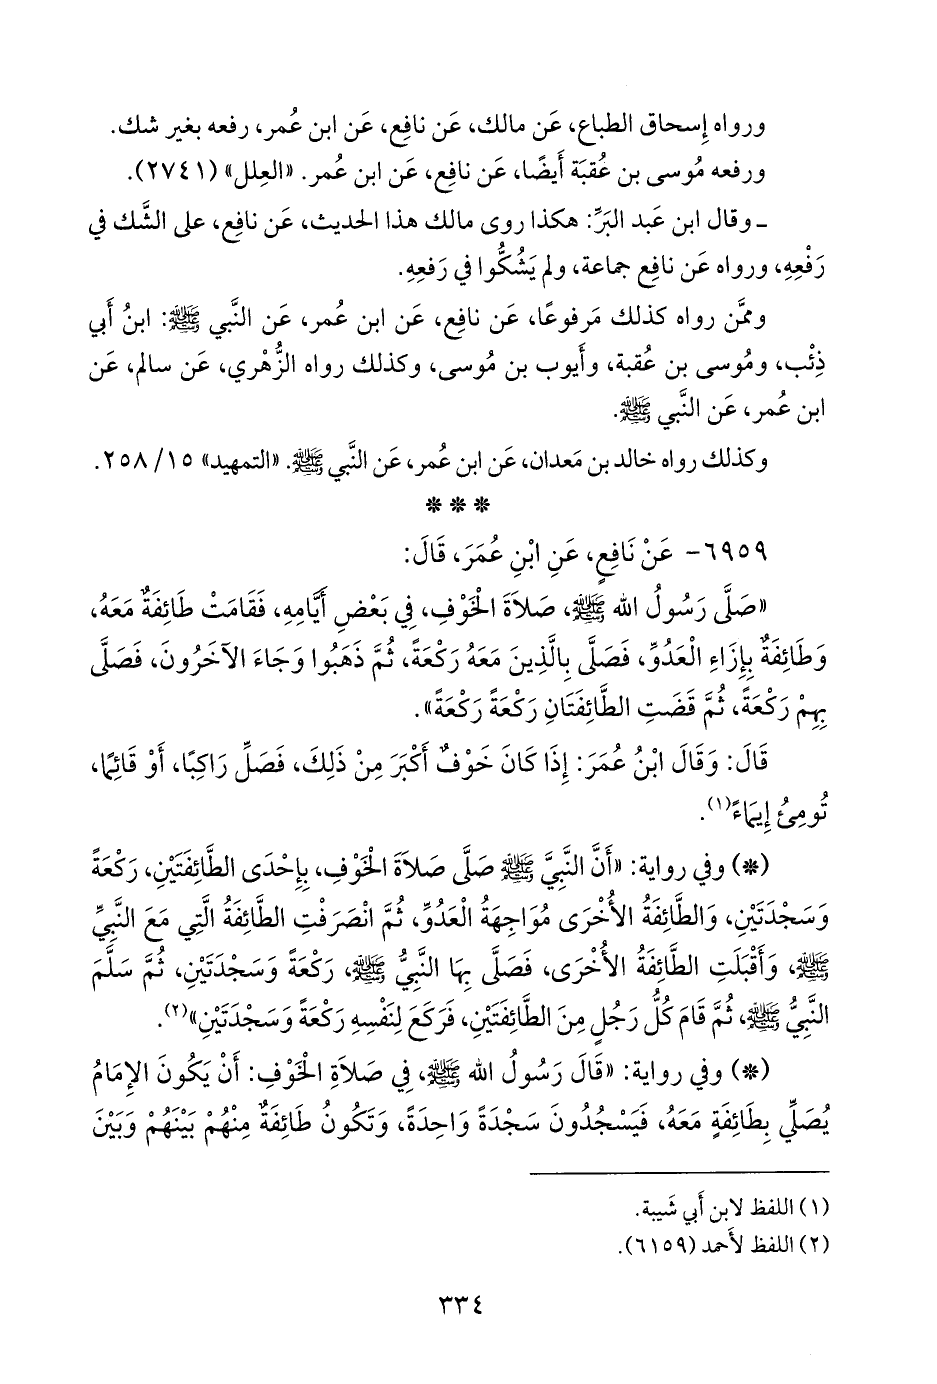 ورواه إِسحاق الطباع، عَن مالك، عَن نافِع، عَن ابن عُمر، رفعه بغير شك.
ورفعه مُوسى بن عُقبَة أَيضًا، عَن نافِع، عَن ابن عُمر. «العِلل» (٢٧٤١).
ـ وقال ابن عَبد البَرِّ: هكذا روى مالك هذا الحديث، عَن نافِع، على الشَّك في
رَفْعِهِ، ورواه عَن نافِع جماعة، ولم يَشُكُّوا في رَفعِهِ.
وممَّن رواه كذلك مَرفوعًا، عَن نافِع، عَن ابن عُمر، عَن النَّبي ﷺ: ابنُ أَبي
ذِئْب، ومُوسى بن عُقبة، وأَيوب بن مُوسى، وكذلك رواه الزُّهْري، عَن سالم، عَن
ابن عُمر، عَن النَّبي ﷺ.
وكذلك رواه خالد بن مَعدان، عَن ابن عُمر، عَن النَّبي ﷺ. «التمهيد» ١٥/ ٢٥٨.
* * *
٦٩٥٩- عَنْ نَافِعٍ، عَنِ ابْنِ عُمَرَ، قَالَ:
«صَلَّى رَسُولُ الله ﷺ، صَلاَةَ الْخَوْفِ، فِي بَعْضِ أَيَّامِهِ، فَقَامَتْ طَائِفَةٌ مَعَهُ،
وَطَائِفَةٌ بِإِزَاءِ الْعَدُوِّ، فَصَلَّى بِالَّذِينَ مَعَهُ رَكْعَةً، ثُمَّ ذَهَبُوا وَجَاءَ الآخَرُونَ، فَصَلَّى
بِهِمْ رَكْعَةً، ثُمَّ قَضَتِ الطَّائِفَتَانِ رَكْعَةً رَكْعَةً».
قَالَ: وَقَالَ ابْنُ عُمَرَ: إِذَا كَانَ خَوْفٌ أَكْبَرَ مِنْ ذَلِكَ، فَصَلِّ رَاكِبًا، أَوْ قَائِمًا،
تُومِئُ إِيمَاءً(١).
(*) وفي رواية: «أَنَّ النَّبِيَّ ﷺ صَلَّى صَلاَةَ الْخَوْفِ، بِإِحْدَى الطَّائِفَتَيْنِ، رَكْعَةً
وَسَجْدَتَيْنِ، وَالطَّائِفَةُ الأُخْرَى مُوَاجِهَةُ الْعَدُوِّ، ثُمَّ انْصَرَفْتِ الطَّائِفَةُ الَّتِي مَعَ النَّبِيِّ
ﷺ، وَأَقْبَلَتِ الطَّائِفَةُ الأُخْرَى، فَصَلَّى بِهَا النَّبِيُّ ﷺ، رَكْعَةً وَسَجْدَتَيْنِ، ثُمَّ سَلَّمَ
النَّبِيُّ ﷺ، ثُمَّ قَامَ كُلُّ رَجُلٍ مِنَ الطَّائِفَتَيْنِ، فَرَكَعَ لِنَفْسِهِ رَكْعَةً وَسَجْدَتَيْنِ»(٢).
(*) وفي رواية: «قَالَ رَسُولُ الله ﷺ، فِي صَلاَةِ الْخَوْفِ: أَنْ يَكُونَ الإِمَامُ
يُصَلِّي بِطَائِفَةٍ مَعَهُ، فَيَسْجُدُونَ سَجْدَةً وَاحِدَةً، وَتَكُونُ طَائِفَةٌ مِنْهُمْ بَيْنَهُمْ وَبَيْنَ
(١) اللفظ لابن أَبي شَيبة.
(٢) اللفظ لأَحمد (٦١٥٩).
٣٣٤